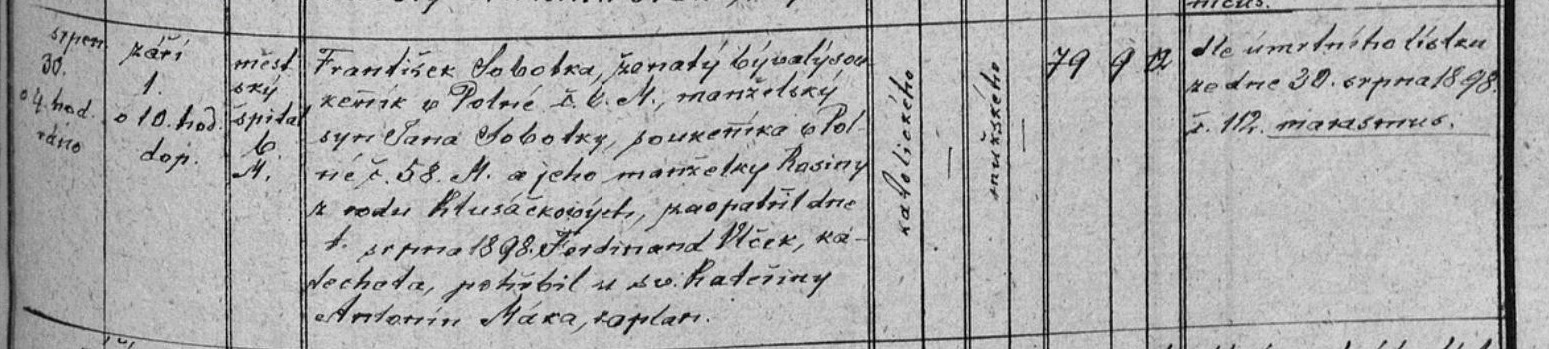 srpen
30.
o 4. hod.
ráno
září
1.
o 10. hod.
dop.
měst
ský
špitál
6.
M.
František Sobotka, ženatý bývalý sou
keník v Polné č. 6. M., manželský
syn Jana Sobotky, soukeníka v Pol-
né č. 58. M. a jeho manželky Rosiny
z rodu Klusáčkových, zaopatřil dne
1. srpna 1898 Ferdinand Vlček, ka-
techeta, pohřbil u sv. Kateřiny
Antonín Máka, kaplan.
katolického
—
mužského
—
79
9
12
dle úmrtního lístku
ze dne 30. srpna 1898.
č. 112. marasmus.